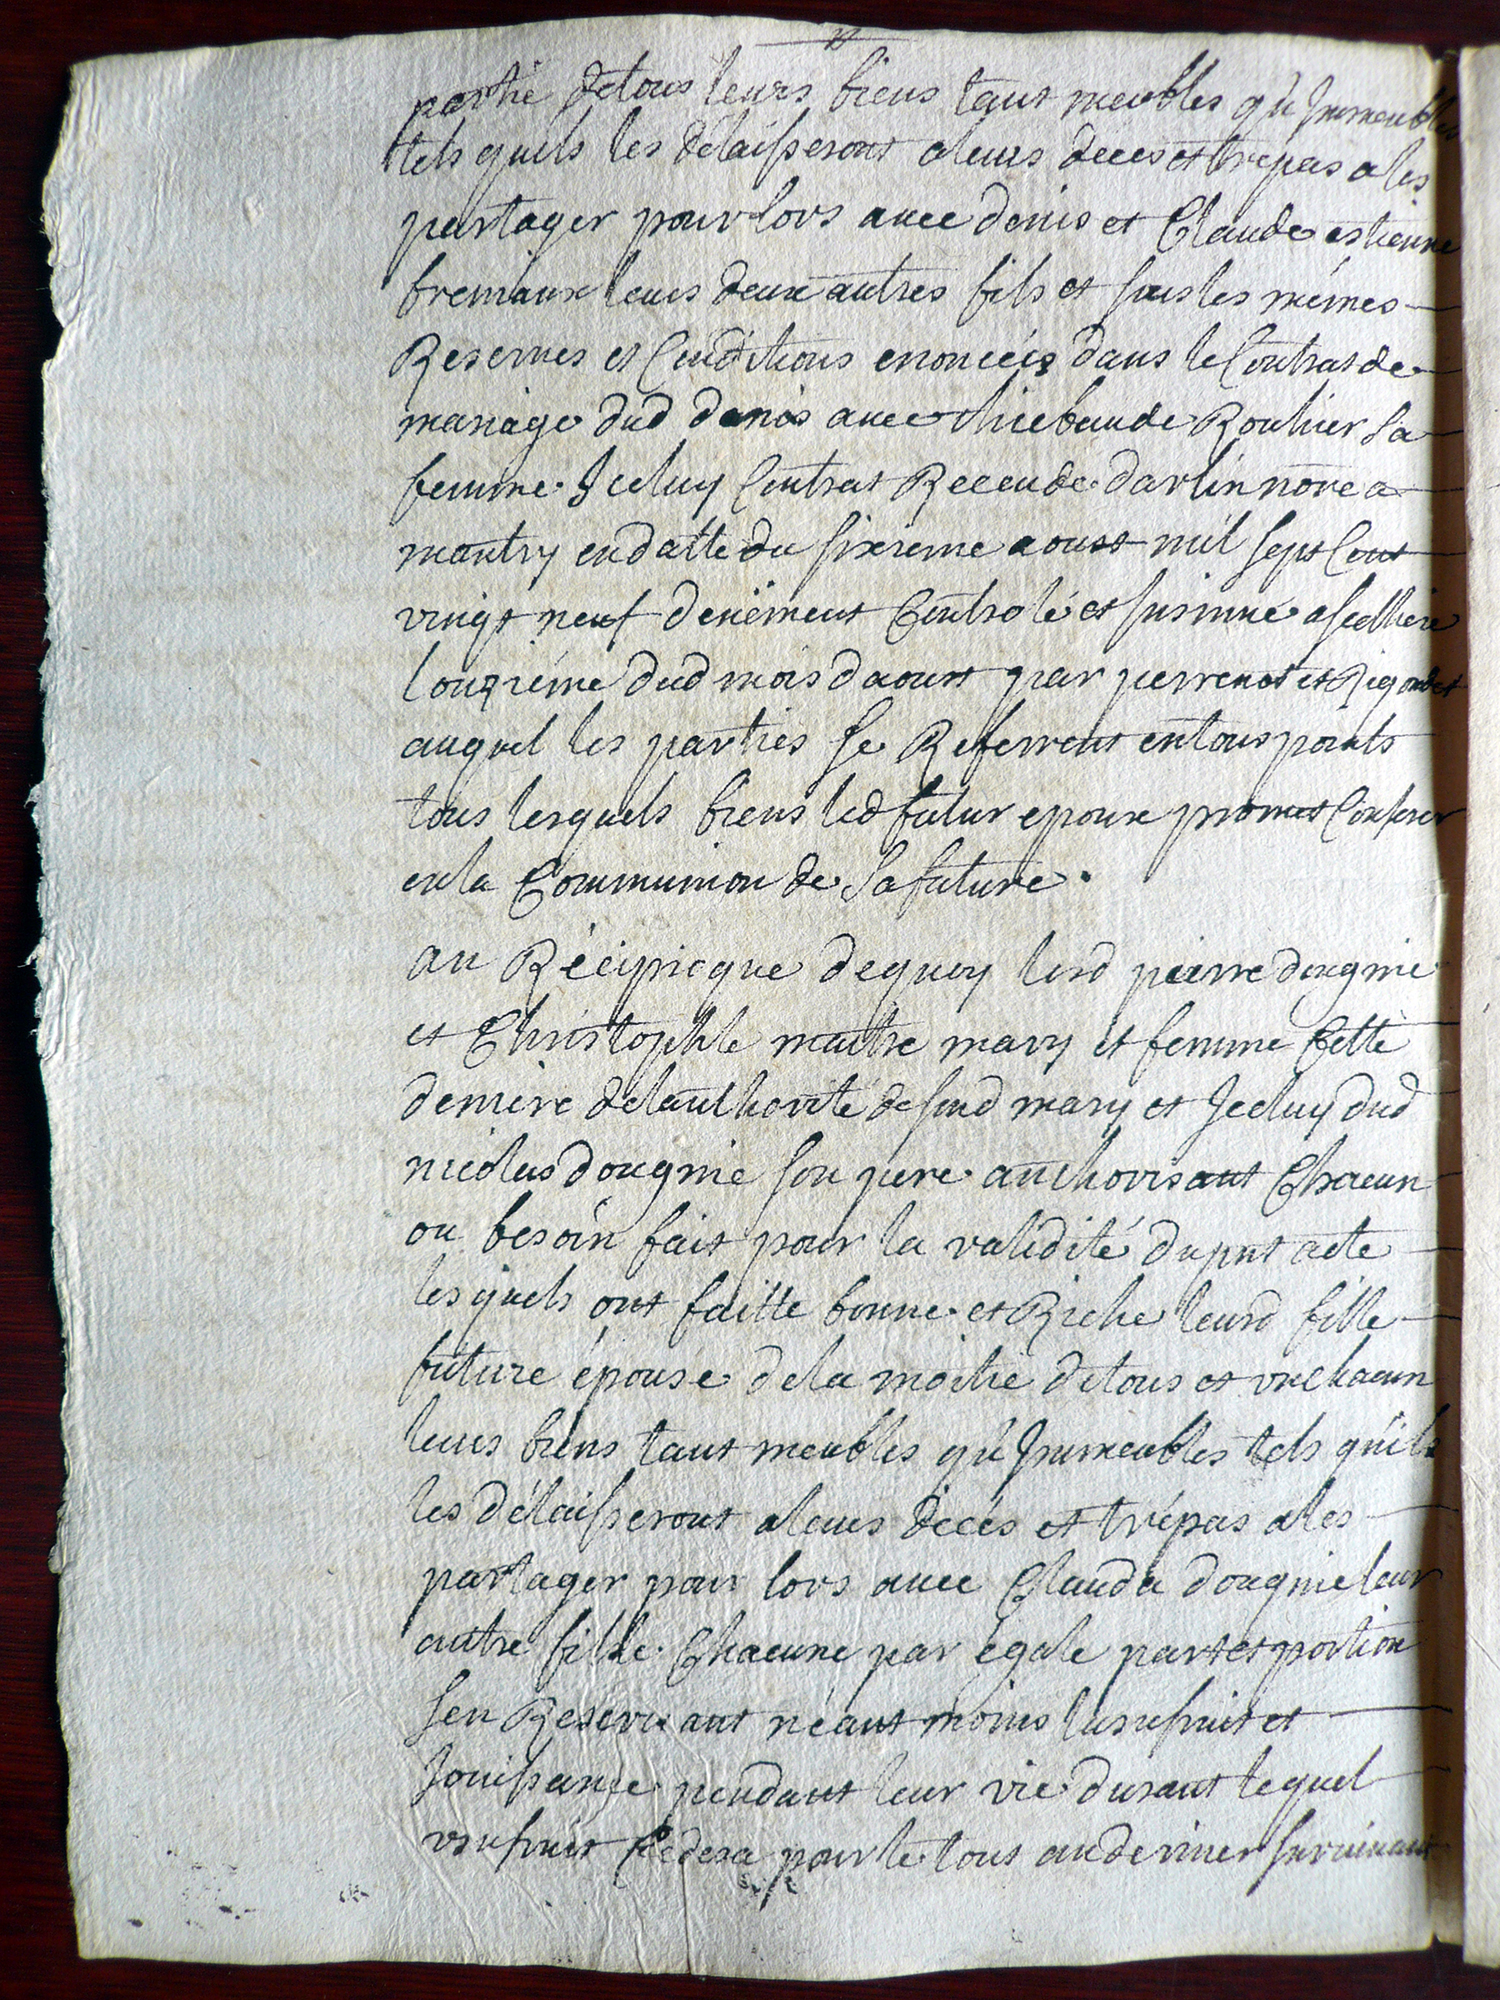 partie detous leurs biens tant meubles qu'Immeubles
tels quils les délaisseront aleurs deces et trepas ales
partager pour lors avec denis et Claude estienne
fremiaux leurs deux autres fils et sous les mémes
Reserves et Conditions enoncées dans le Contrat de
mariage dud denis avec thiebaude Rouhier Sa
femme Iceluy Contrat Receu de darlin nore a
mantry en datte du sixieme aoust mil sept Cent
vingt neuf deuëment Controlé et Insinué a sellieres
lonziéme dud mois daoust par perrenot et Rigoulet
auquel les parties se Referrent entous points
tous lesquels biens led futur epoux promet Conferer
en la Communion de Safuture.
au Réciproque dequoy lesd pierre dougnie
et Christophle maitre mary et femme Cette
derniere delauthorité desond mary et Iceluy dud
nicolas dougnie son pere authorisant Chacun
ou besoin fait pour la validité dupnt acte
lesquels ont faitte bonne et Riche leurd fille
future épouse dela moitie detous et vnchacun
leurs biens tant meubles qu'Immeubles tels quils
les délaisseront aleurs décés et trépas ales
partager pour lors avec Clauda dougnie leur
autre fille Chacune par égale part et portion
sen Reservant néant moins lusufruit et
Jouissance pendant leur vie durant lequel
vsufruit Cedera pour le tout audernier survivant